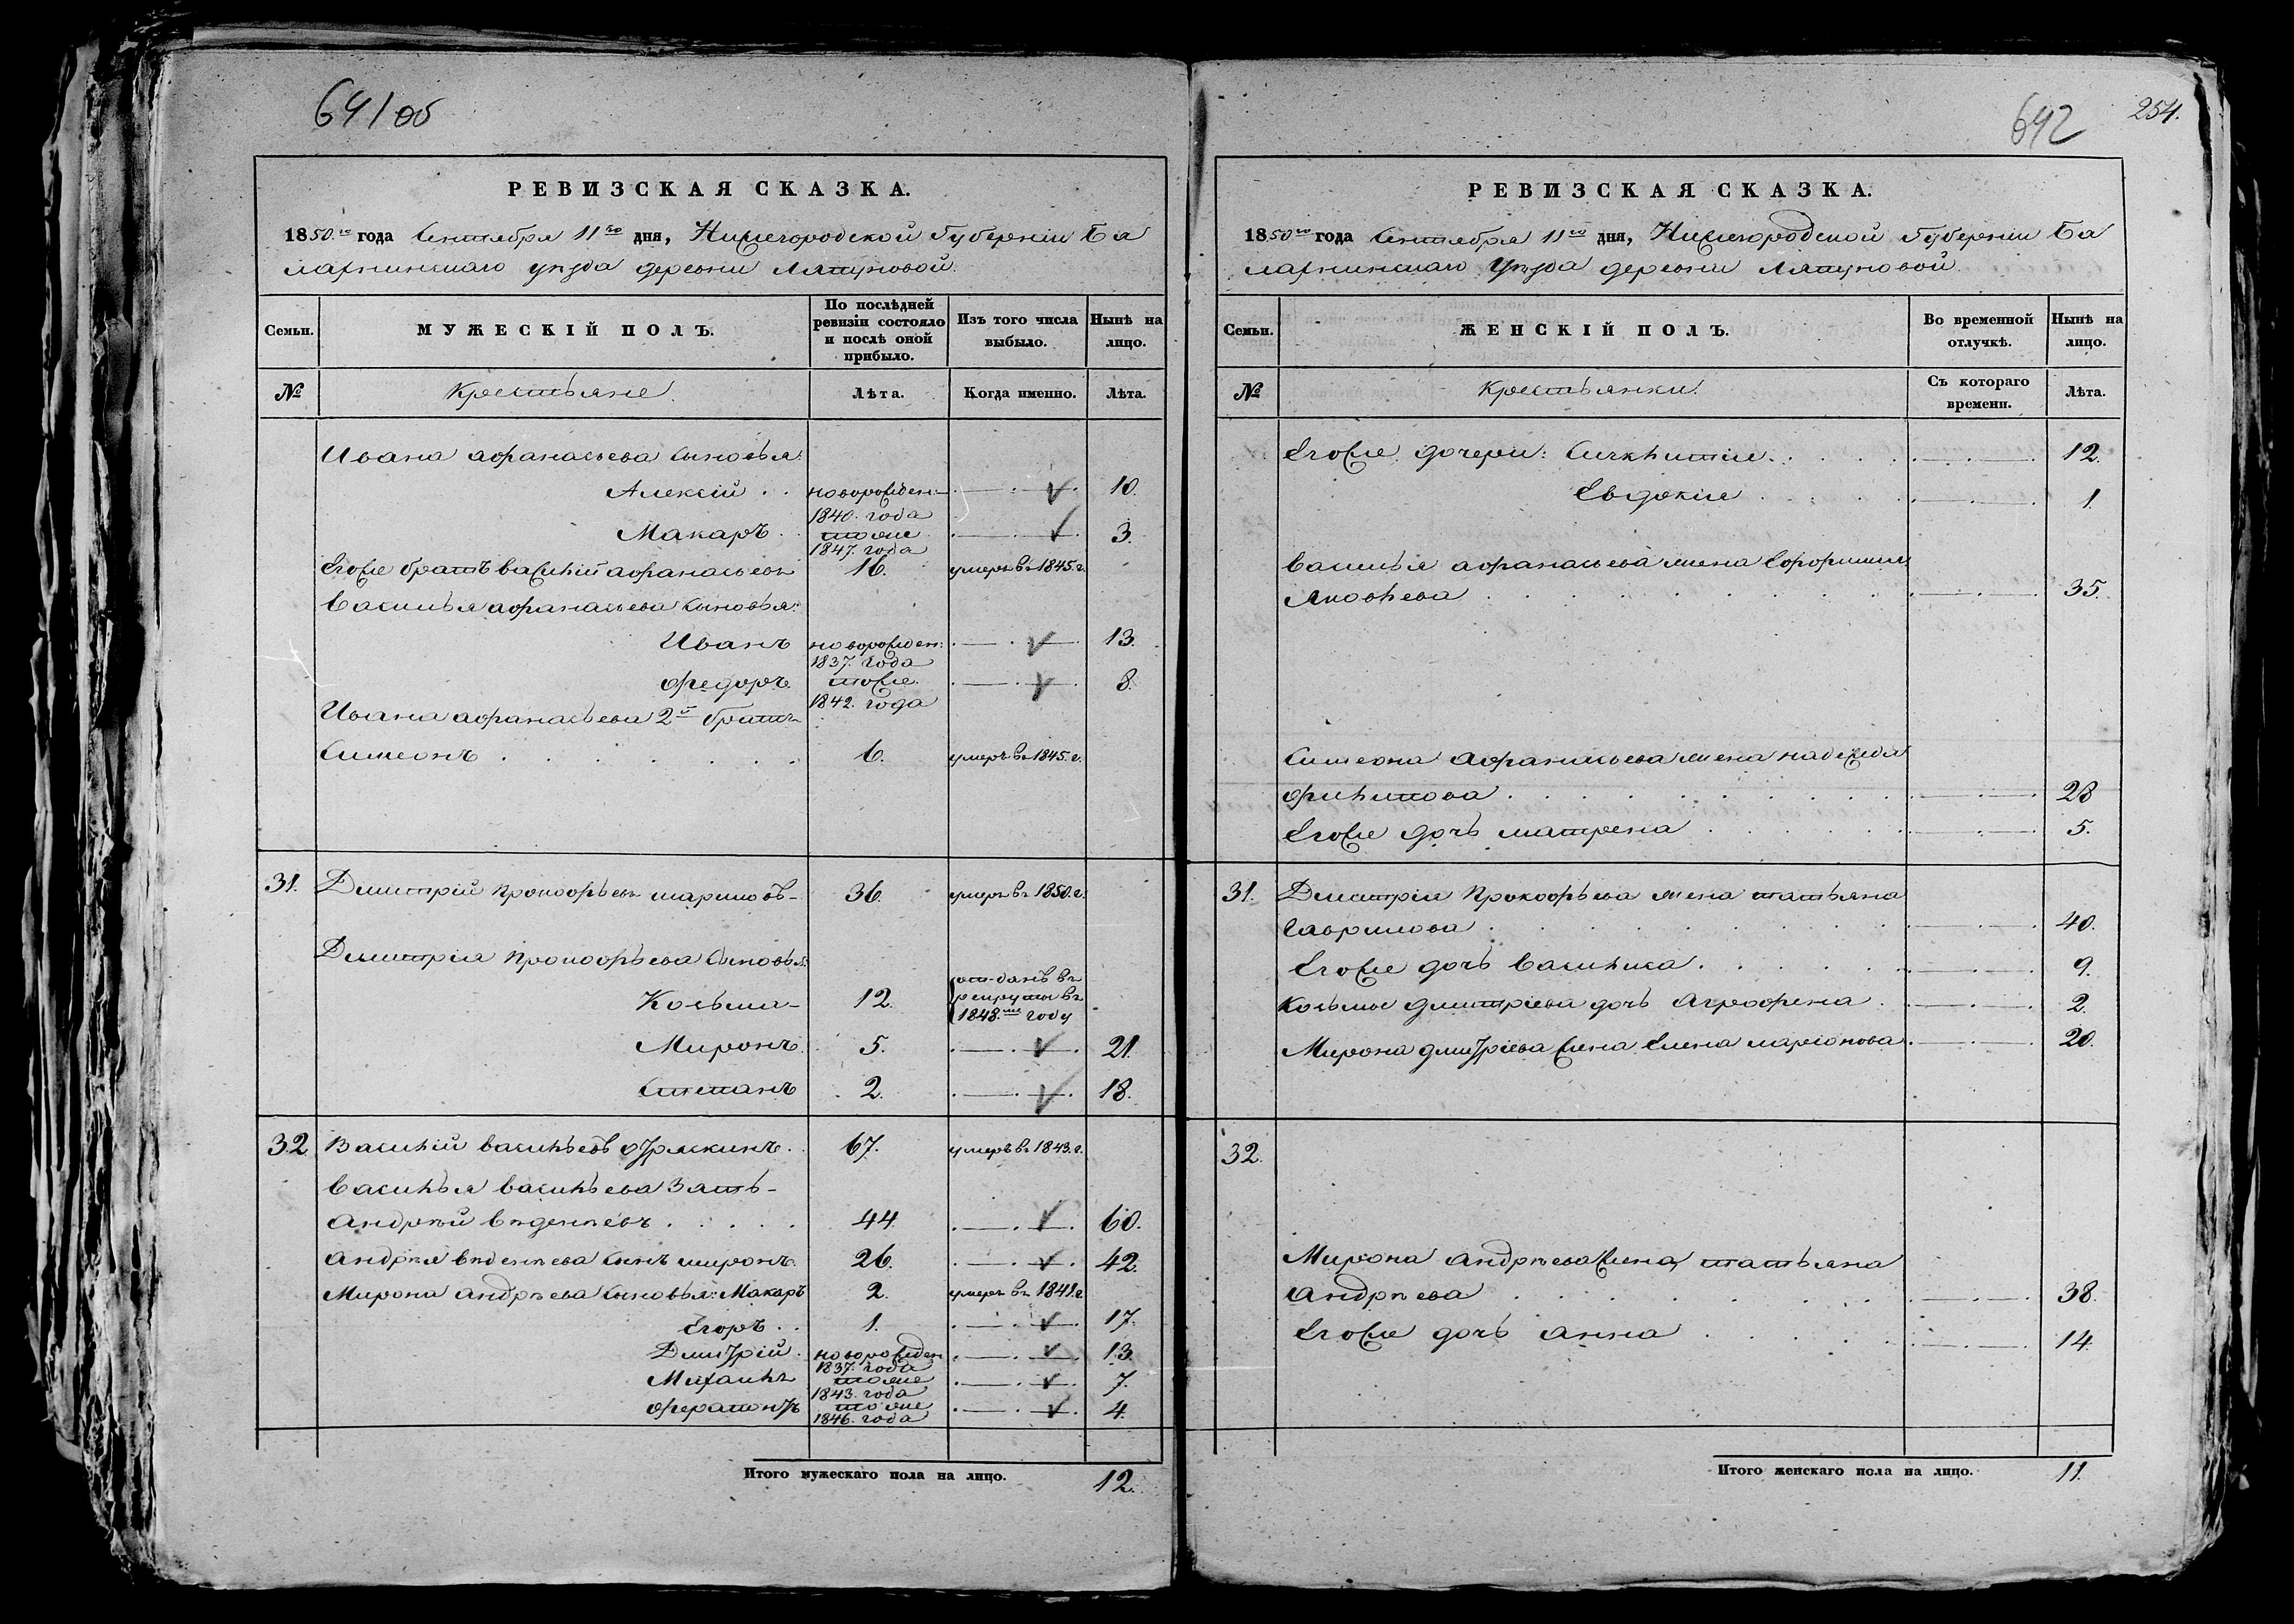 641об
РЕВИЗСКАЯ СКАЗКА.
1850.го года Сентября 11го дня, Нижегородской Губерніи Ба
лахнинскаго уѣзда деревни Ляпуновой.
Семьи. МУЖЕСКІЙ ПОЛЪ. По послѣдней ревизіи состояло и послѣ оной прибыло. Изъ того числа выбыло. Нынѣ на лицо.
№ Крестьяне. Лѣта. Когда именно. Лѣта.
Ивана Афанасьева сыновья:
Алексій . . новорожден: 10.
1840. года
Макаръ . тоже 3.
1847. года
Егоже братъ Василій Афанасьевъ 16. умеръ въ 1845. г.
Василья Афанасьева сыновья:
Иванъ новорожден: 13.
1837. года
Федоръ тоже. 8.
1842. года
Ивана Афанасьева 2й братъ
Симеонъ . . . . . . . 6. умеръ въ 1845. г.
31. Димитрій Прокофьевъ 36. умеръ въ 1850. г.
Димитрія Прокофьева сыновья:
Козьма 12. отданъ въ рекруты въ 1848.ме году
Миронъ. 5. 21.
Степанъ 2. 18.
32. Василій Васильевъ 67. умеръ въ 1843. г.
Василья Васильева Зять
Андрѣй . . . . . 44. 60.
Андрѣя сынъ Миронъ. 26. 42.
Мирона Андрѣева сыновья: Макаръ 2. умеръ въ 1841. г.
Егоръ . . 1. 17.
Дмитрій . новорожден 13.
1837. года
Михаилъ тоже 7.
1843. года
Ферапонтъ тоже 4.
1846. года
Итого мужескаго пола на лицо. 12.
642 254.
РЕВИЗСКАЯ СКАЗКА.
1850го года Сентября 11го дня, Нижегородской Губерніи Ба
лахнинскаго Уѣзда деревни Ляпуновой.
Семьи. ЖЕНСКІЙ ПОЛЪ. Во временной отлучкѣ. Нынѣ на лицо.
№ Крестьянки. Съ котораго времени. Лѣта.
Егоже дочери: 12.
Евдокія . . . . 1.
Василья Афанасьева жена
Яковлева . . . . . . . . 35.
Симеона Афанасьева жена Надежда
Филипова . . . . . . . . 28
Егоже дочь Матрена . . . . . 5.
31. Димитрія Прокофьева жена Татьяна
Гаврилова . . . . . . . . 40.
Егоже дочь Василиса . . . . . 9.
Козьмы Дмитріева дочь Агрофена . 2.
Мирона Дмитріева жена Елена Ларіонова 20.
32.
Мирона Андрѣева жена, Татьяна
Андрѣева . . . . . . . . 38.
Егоже дочь Анна . . . . . 14.
Итого женскаго пола на лицо. 11.